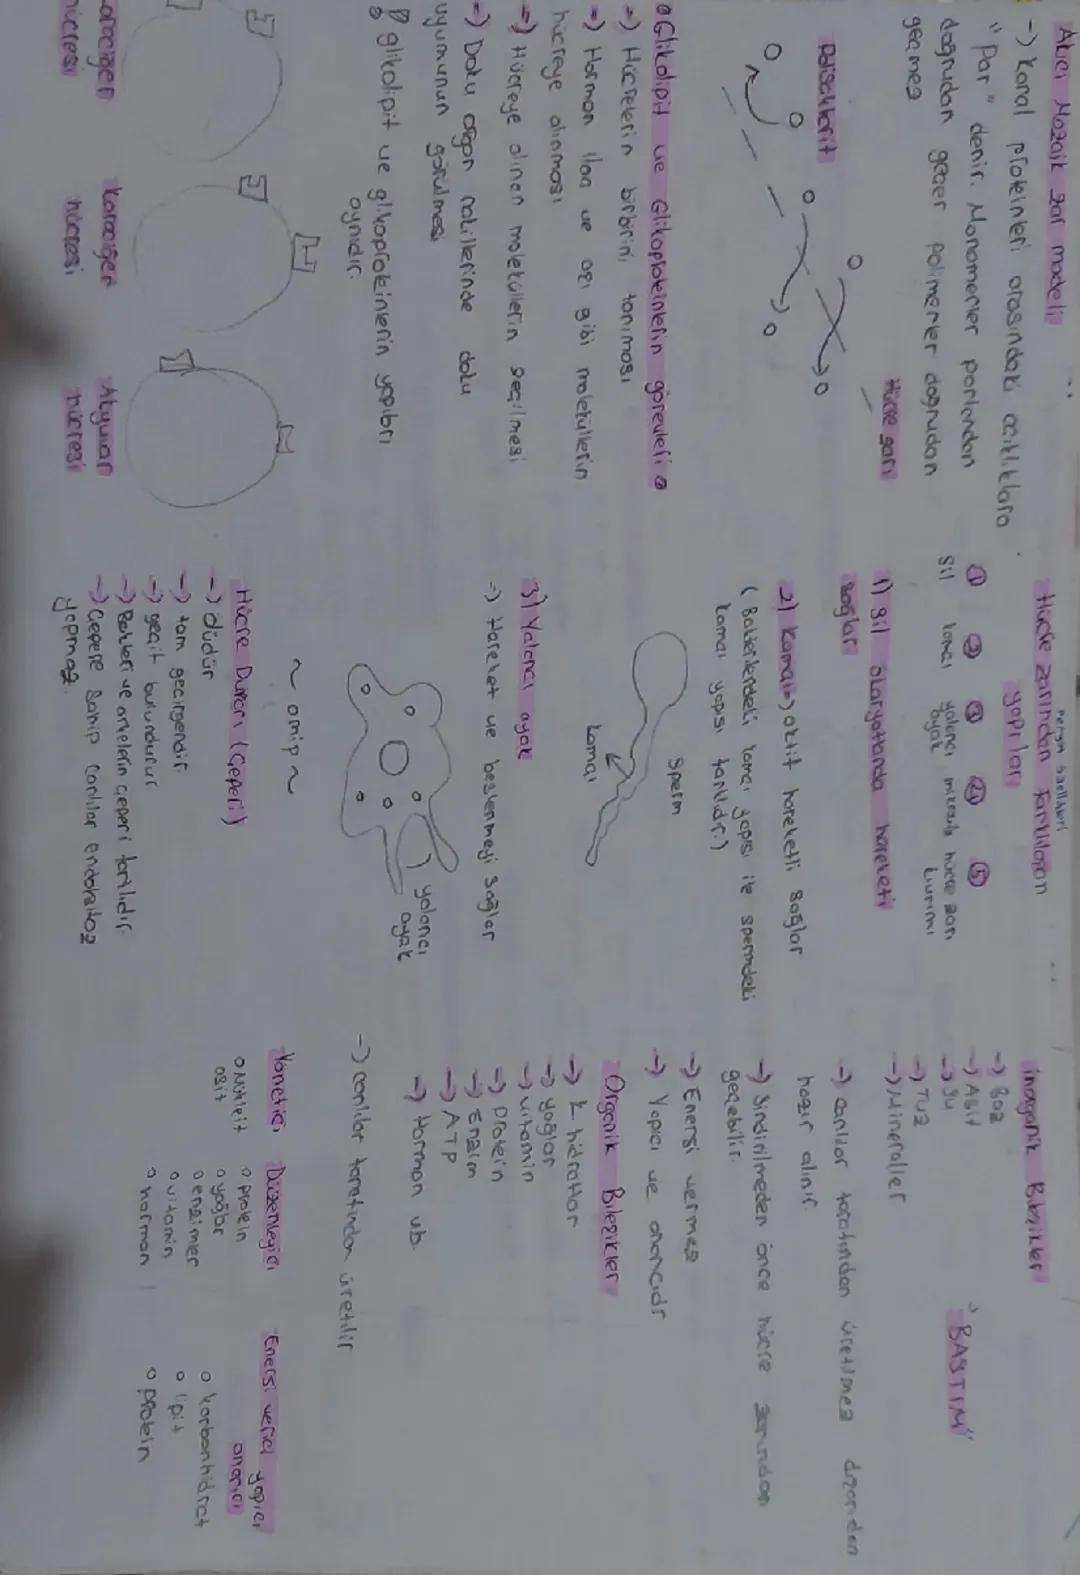 Akıcı Mozaik Zar modeli
-) Kanal proteinleri arasındaki açıklıklara
"Por" denir. Monomerler porlardan
doğrudan geçer polimerler doğrudan
geçmez
Hücre zarı
Polisakkarit
Glikolipit ve Glikoproteinlerin görevleri
-) Hücrelerin birbirini tanıması
-) Hormon ilaç ve gibi moleküllerin
hücreye alınması
-) Hücreye alınan moleküllerin seçilmesi
-) Doku organ nakillerinde doku
uyumunun görülmesi
glikolipit ve glikoproteinlerin yapıları
aynıdır.
karaciğer
hücresi
Karaciğer
hücresi
Akyuvar
hücresi
Hücre zarından Farklılaşan
yapılar
① ② ③ ④ ⑤
Sil kamçı yalancı ayak mikrovilüs hücre zarı
kıvrımı
1) sil ökaryotlarda hareketi
sağlar
2) kamçı -) aktif hareketli sağlar
(Bakterilerdeki kamçı yapısı ile spermdeki
kamçı yapısı farklıdır.)
sperm
kamçı
3) Yalancı ayak
-) Hareket ve beslenmeyi sağlar
yalancı
ayak
~ amip ~
Hücre Duvarı (Çeperi)
-) ölüdür
-) tam geçirgendir
-) geçit bulundurur
-) Bakteri ve arkelerin çeperi farklıdır.
-) Çepere sahip canlılar endositoz
yapmaz.
inorganik Bileşikler
-) Baz
-) Asit
-) Su
-) Tuz
-) Mineraller
"BASTIM"
-) canlılar tarafından üretilmez dışarıdan
hazır alınır.
-) Sindirilmeden önce hücre zarından
geçebilir.
-) Enerji vermez
-) Yapıcı ve onarıcıdır
Organik Bileşikler
-) K.hidratlar
-) yağlar
-) vitamin
-) Protein
-) Enzim
-) ATP
-) Hormon vb.
-) canlılar tarafından üretilir
Yönetici
o Nükleit
asit
Düzenleyici
o protein
o yağlar
o enzimler
o vitamin
o hormon
Enerji verici yapıcı
onarıcı
o karbonhidrat
o lipit
o protein